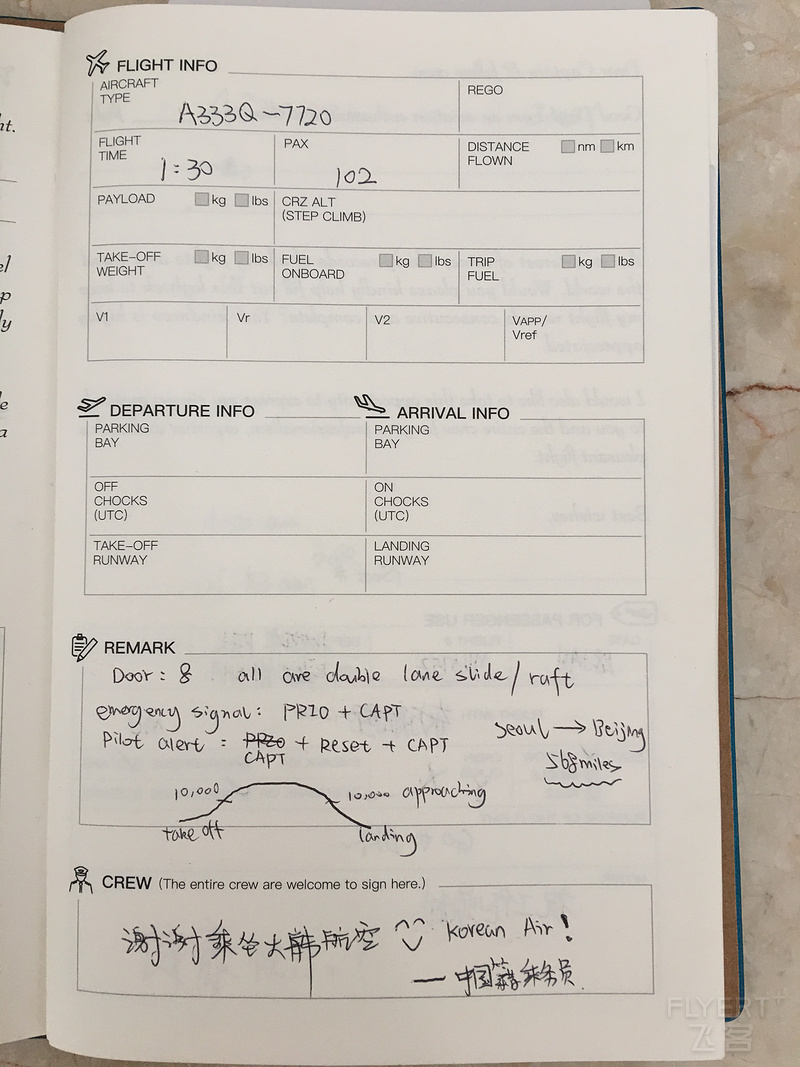 nt.
el
p
ly
e
a
FLIGHT INFO
AIRCRAFT TYPE A333Q-7720
REGO
FLIGHT TIME 1:30
PAX 102
DISTANCE FLOWN nm km
PAYLOAD kg lbs
CRZ ALT (STEP CLIMB)
TAKE-OFF WEIGHT kg lbs
FUEL ONBOARD kg lbs
TRIP FUEL kg lbs
V1
Vr
V2
VAPP/ Vref
DEPARTURE INFO
ARRIVAL INFO
PARKING BAY
PARKING BAY
OFF CHOCKS (UTC)
ON CHOCKS (UTC)
TAKE-OFF RUNWAY
LANDING RUNWAY
REMARK
Door: 8 all are double lane slide/raft
emergency signal: PRIO + CAPT
Pilot alert = PRIO CAPT + Reset + CAPT
Seoul → Beijing
568miles
10,000
10,000 approaching
take off
landing
CREW (The entire crew are welcome to sign here.)
谢谢乘坐大韩航空 Korean Air!
—中国籍乘务员
FLYERT+
飞客